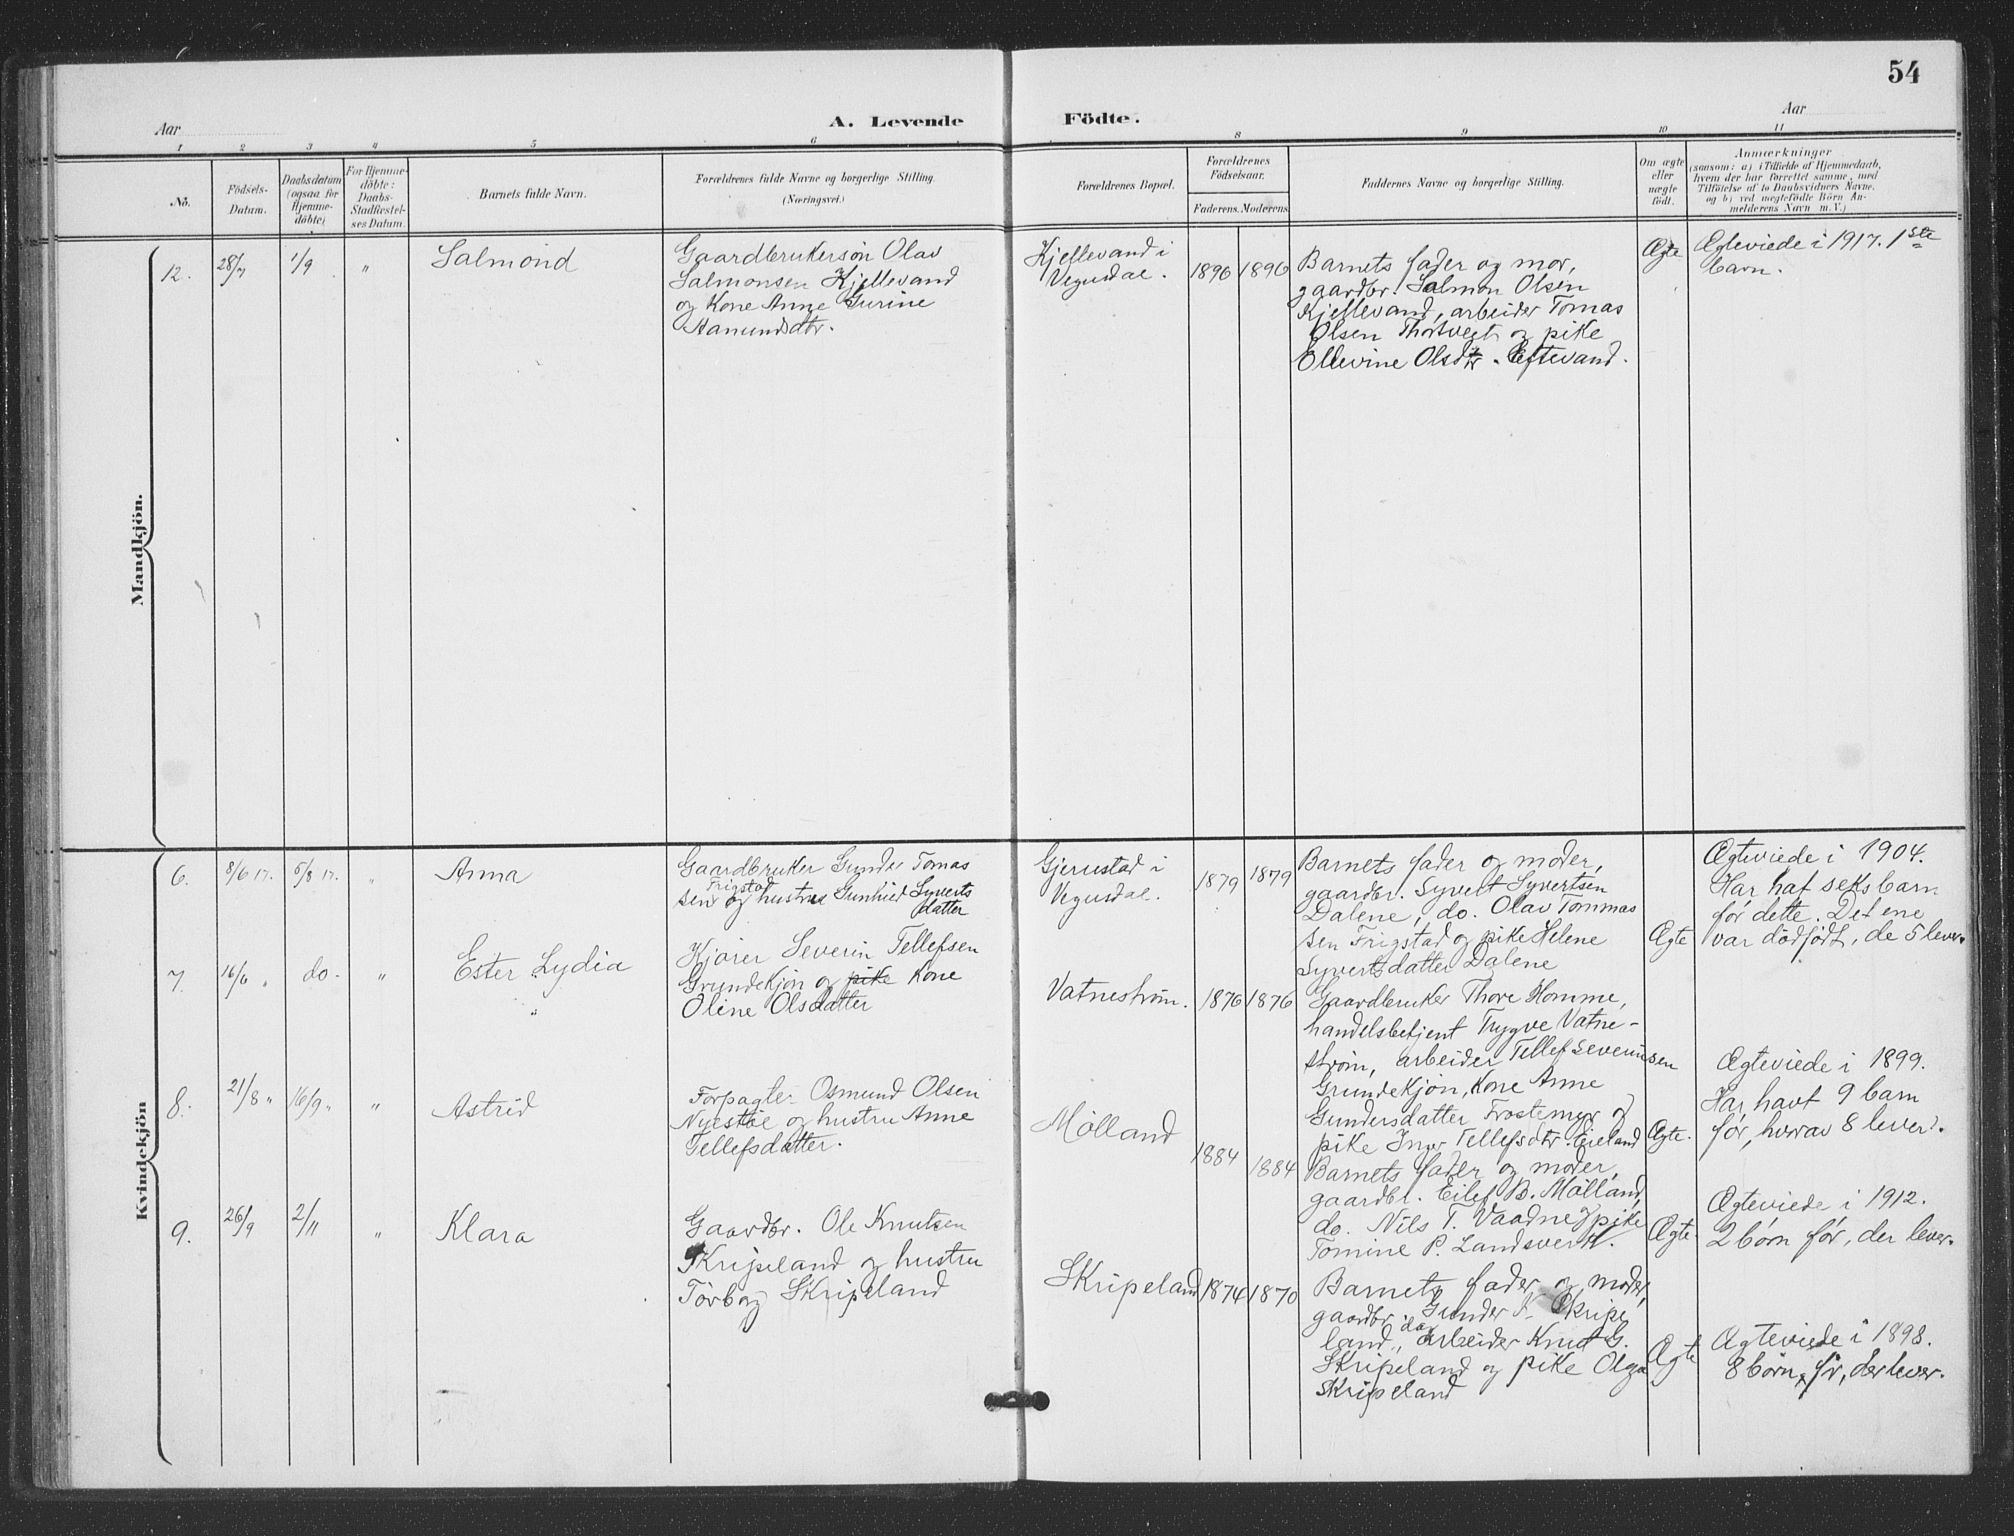 54
Aar
A. Levende
Födte.
Aar
1 2 3 4 5 6 8 9 10 11
No.
Födsels-
Datum.
Daabsdatum
(ogsaa for
Hjemme-
döbte)
For Hjemme-
döbte:
Daabs-
Stadfæstel-
ses Datum.
Barnets fulde Navn.
Forældrenes fulde Navne og borgerlige Stilling.
(Næringsvei.)
Forældrenes Bopæl.
Forældrenes
Födselsaar.
Faderens. Moderens
Faddernes Navne og borgerlige Stilling.
Om ægte
eller
uægte
födt.
Anmærkninger
(saasom: a) i Tilfælde af Hjemmedaab,
hvem der har forrettet samme, med
Tilföielse af to Daabsvidners Navne,
og b) ved uegtefödte Börn An-
melderens Navn m. V.)
Mandkjön.
12. 28/7 1/9 " Salmond
Gaardbrukersøn Olav
Salmonsen Kjellevand
og Kone Anne Gurine
Aamundsdtr.
Kjellevand i
Vegusdal.
1896 1896
Barnets fader og mor,
gaardbr. Salmon Olsen
Kjellevand, arbeider Tomas
Olsen Thortveit og pike
Ellevine Olsdtr. Eftevand.
Ægte
Ægteviede i 1917. 1ste
barn.
Kvindekjön
6. 8/6 17. 5/8 17. " Anna
Gaardbruker Gunder Tomas
sen Frigstad og hustru Gunhild Syverts
datter
Gjerustad i
Vegusdal.
1879 1879
Barnets fader og moder,
gaardbr. Syvert Syvertsen
Dalene, do. Olav Tommas
sen Frigstad og pike Helene
Syvertsdatter Dalene
Ægte
Ægteviede i 1904.
Har hat seks barn
før dette. Det ene
var dødfødt, de 5 lever.
7. 16/6 " do. " Ester Lydia
Kjører Severin Tellefsen
Grundekjøn og pike Kone
Oline Olsdatter
Vatnestrøm.
1876 1876
Gaardbruker Thore Homme,
handelsbetjent Trygve Vatne-
strøm, arbeider Tellef Severinsen
Grundekjøn, Kone Anne
Gundersdatter Frostemyr og
pike Inger Tellefsdtr. Eieland
Ægte.
Ægteviede i 1899.
Har havt 9 barn
før, hvorav 8 lever.
8. 21/8 " 16/9 " " Astrid
Forpagter Osmund Olsen
Nyestøl og hustru Anne
Tellefsdatter.
Mølland
1884 1884
Barnets fader og moder,
gaardbr. Eilef B. Mølland,
do. Nils T. Vaadne, pike
Tomine P. Landsverk.
Ægte.
Ægteviede i 1912.
2 børn før, der lever.
9. 26/9 2/11 " Klara
Gaardbr. Ole Knutsen
Skripeland og hustru
Tørborg Skripeland
Skripeland
1874 1870
Barnets fader og moder,
gaardbr. Gunder A. Skripe
land, arbeider Knut G.
Skripeland og pike Olga
Skripeland
Ægte
Ægteviede i 1898.
8 børn før, der lever.